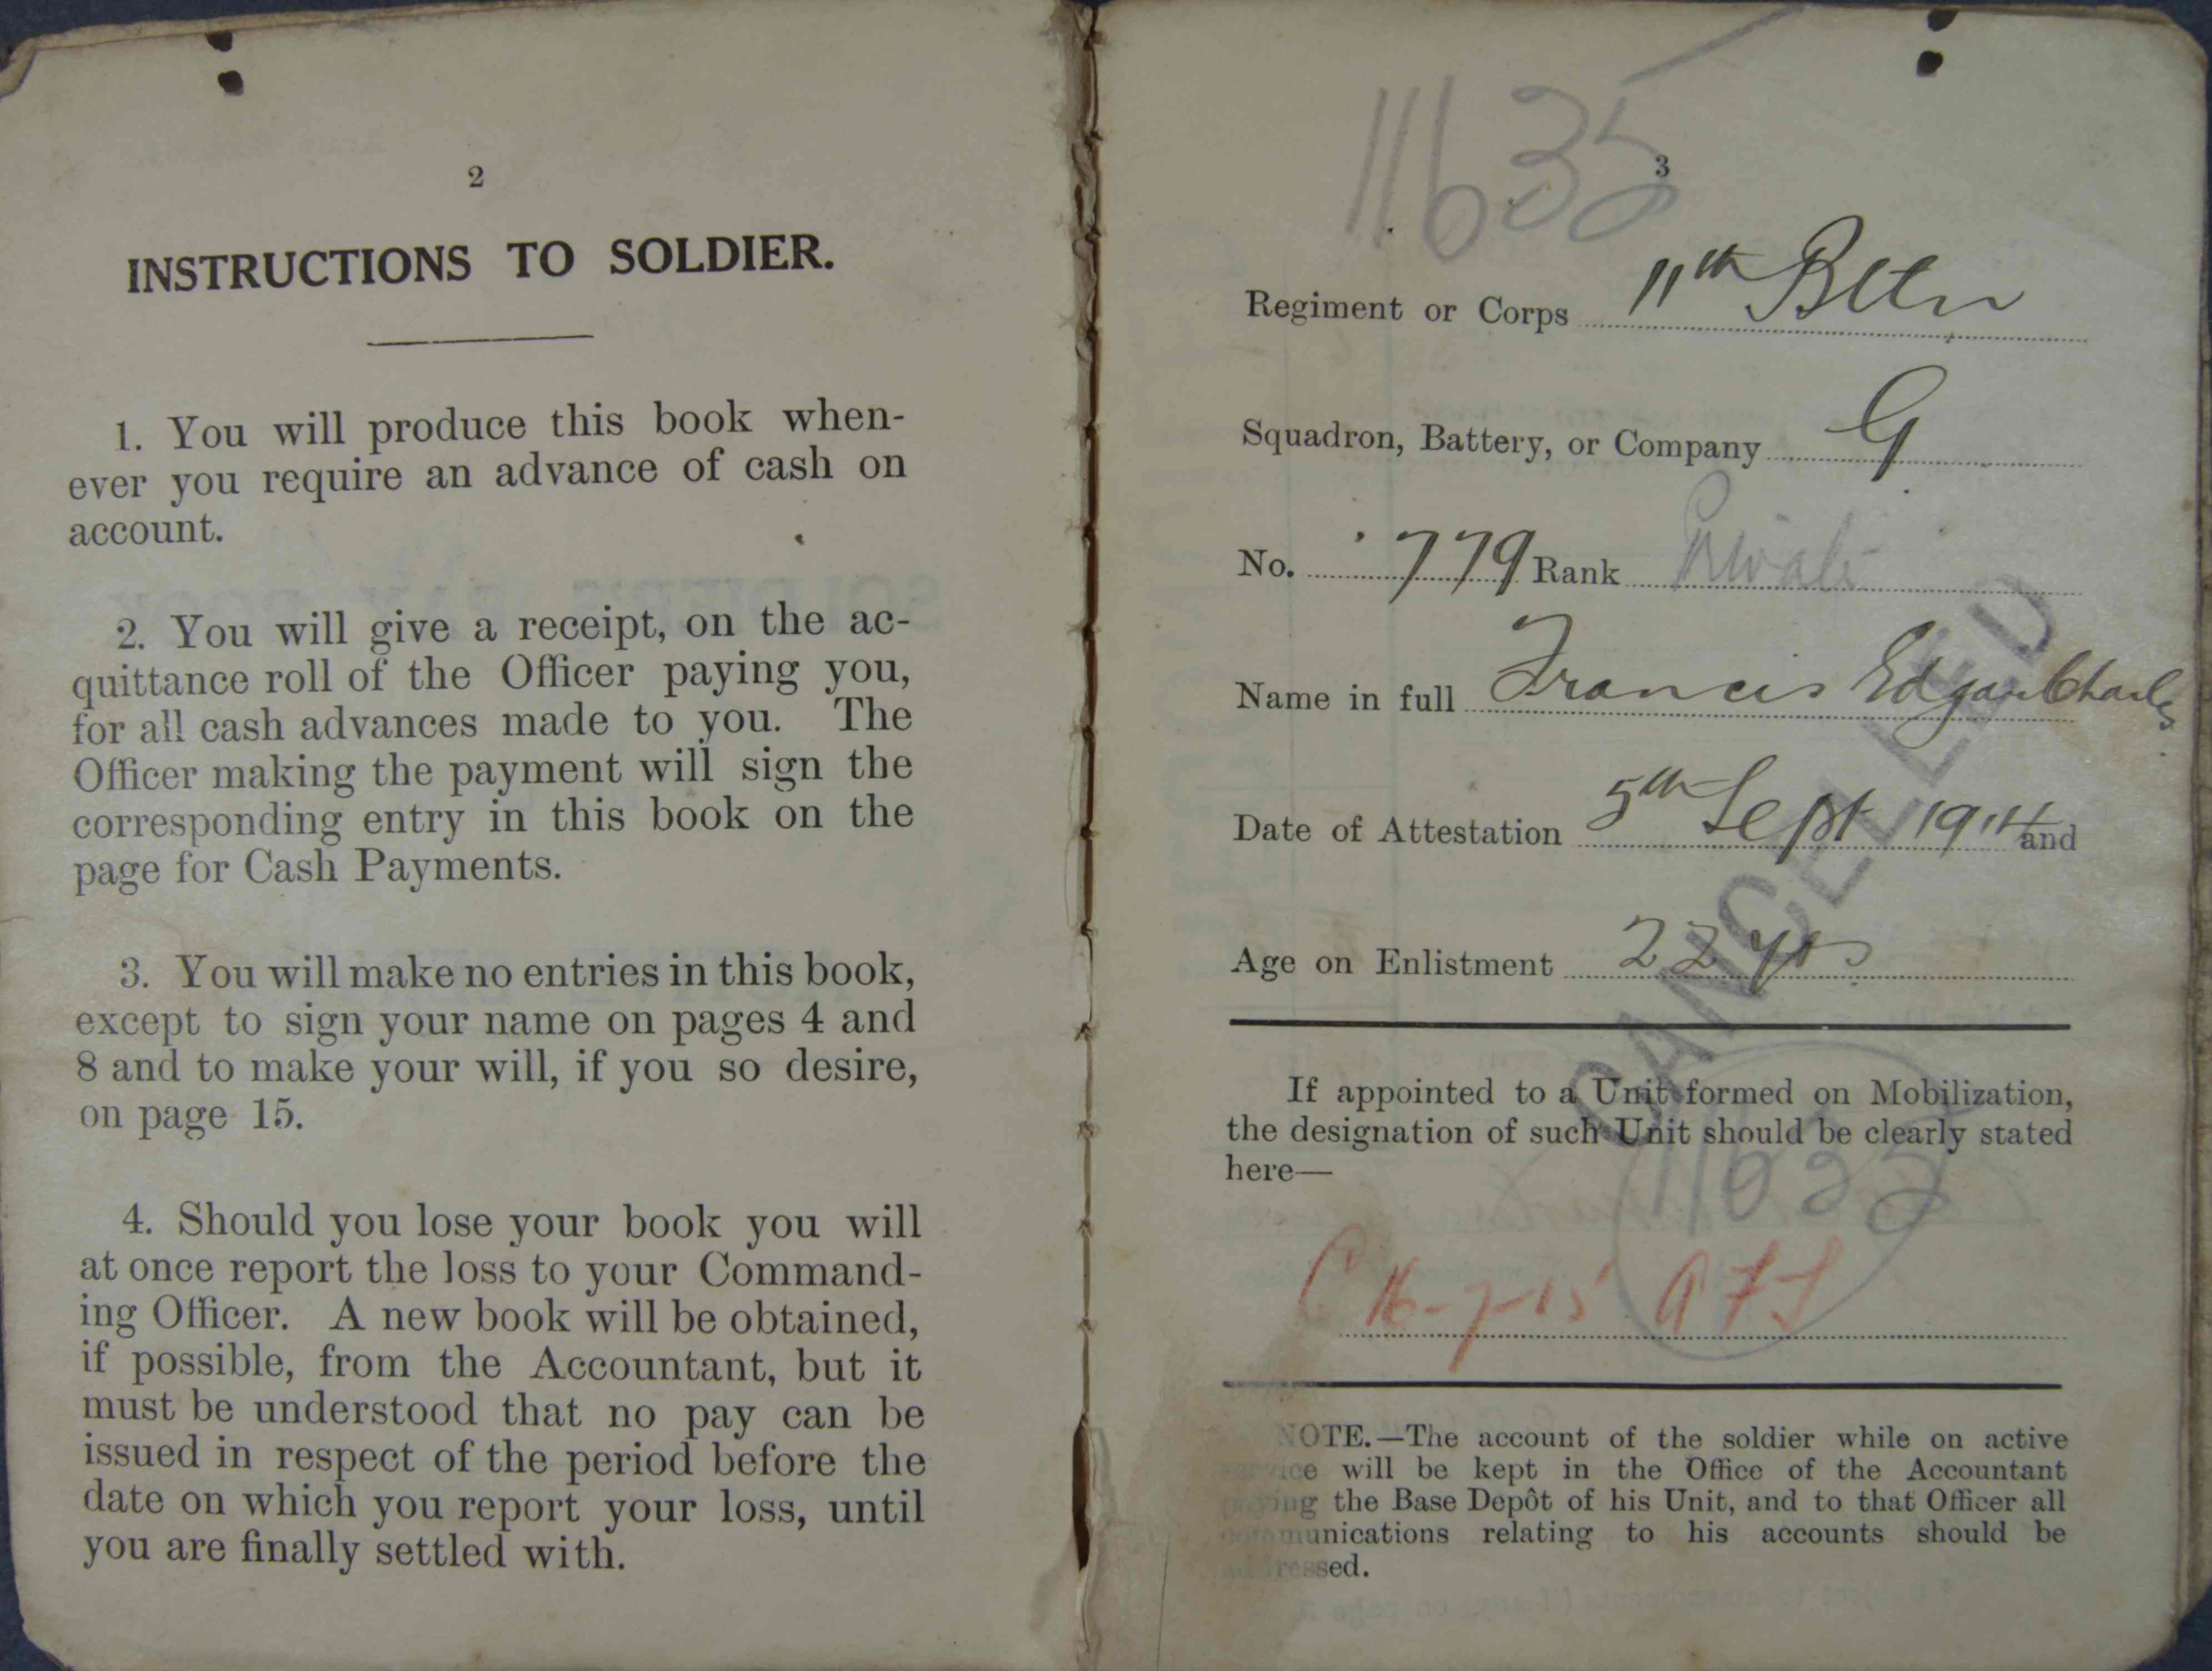 2
INSTRUCTIONS TO SOLDIER.
1. You will produce this book when-
ever you require an advance of cash on
account.
2. You will give a receipt, on the ac-
quittance roll of the Officer paying you,
for all cash advances made to you. The
Officer making the payment will sign the
corresponding entry in this book on the
page for Cash Payments.
3. You will make no entries in this book,
except to sign your name on pages 4 and
8 and to make your will, if you so desire,
on page 15.
4. Should you lose your book you will
at once report the loss to your Command-
ing Officer. A new book will be obtained,
if possible, from the Accountant, but it
must be understood that no pay can be
issued in respect of the period before the
date on which you report your loss, until
you are finally settled with.
11635
3
Regiment or Corps 11th Bttn
Squadron, Battery, or Company G
No. 779 Rank Private
Name in full Francis Edgar Charles
Date of Attestation 5th Sept 1914 and
Age on Enlistment 22 yrs
CANCELLED
If appointed to a Unit formed on Mobilization,
the designation of such Unit should be clearly stated
here—
11635
16-7-15
NOTE.—The account of the soldier while on active
service will be kept in the Office of the Accountant
paying the Base Depôt of his Unit, and to that Officer all
communications relating to his accounts should be
addressed.